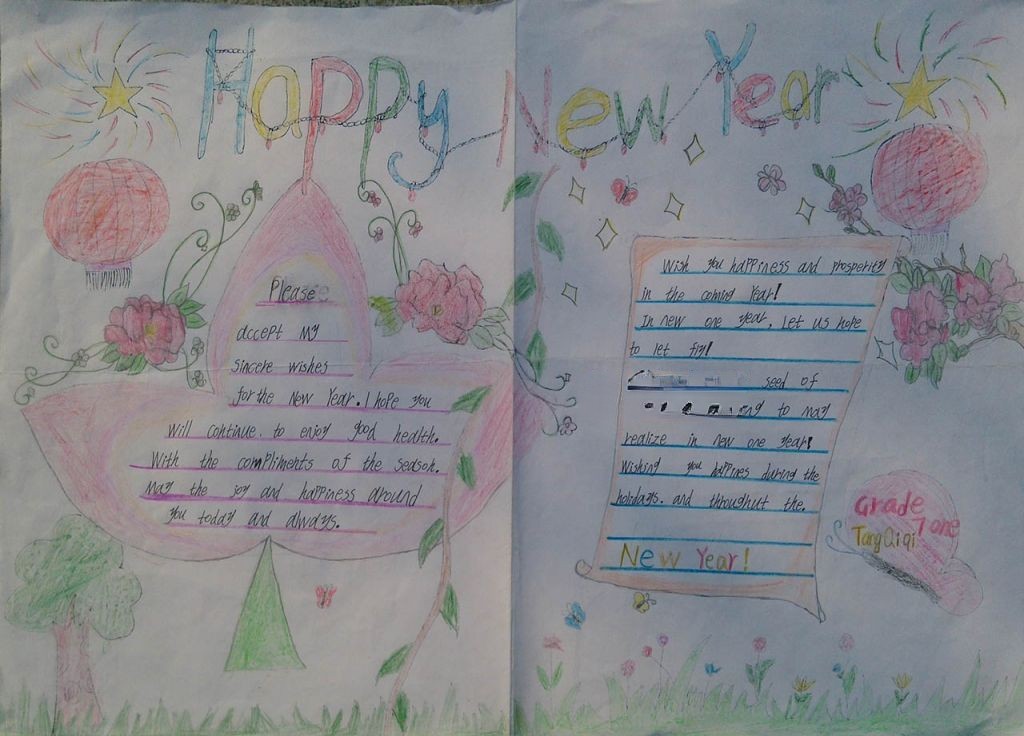 Happy New Year
Please
accept my
sincere wishes
for the New Year. I hope you
will continue. to enjoy good health.
With the compliments of the season.
May the joy and happiness around
you today and always.
Wish you happiness and prosperity
in the coming Year!
In new one year, Let us hope
to let fly!
seed of
to may
realize in new one year!
Wishing you happines during the
holidays. and throughut the.
New Year!
Grade 7 one
Tang Qi qi